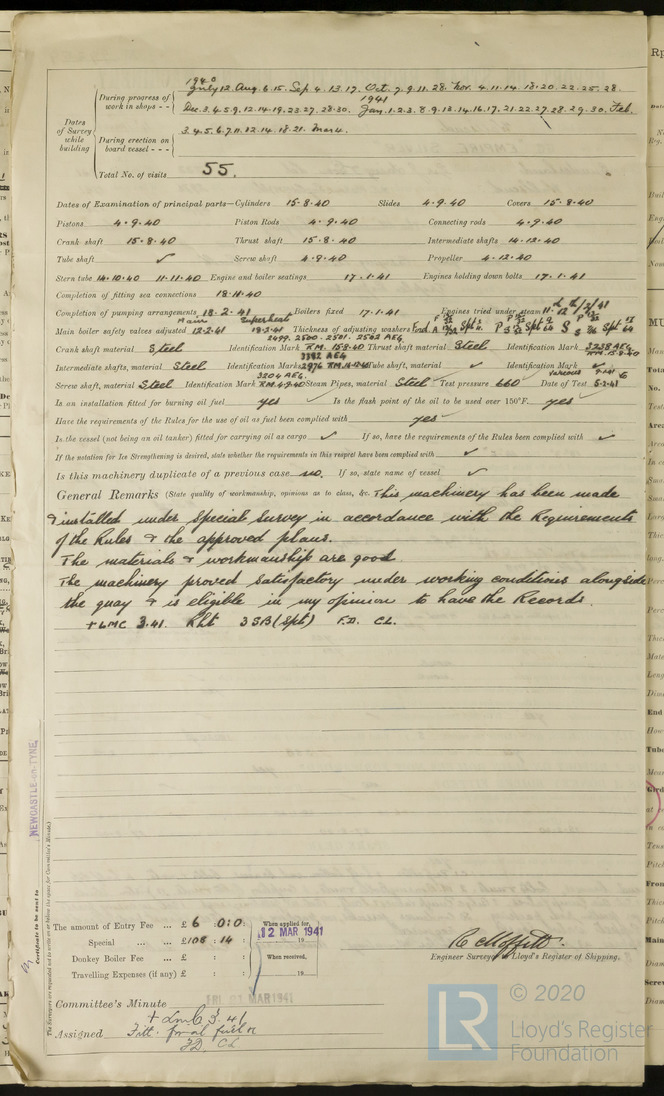 1940
During progress of work in shops - - July 12. Aug. 6. 15. Sep. 4. 13. 17. Oct. 7. 9. 11. 28. Nov. 4. 11. 14. 18. 20. 22. 25. 28.
1941
Dec. 3. 4. 5. 9. 12. 14. 19. 23. 27. 28. 30. Jan. 1. 2. 3. 8. 9. 13. 14. 16. 17. 21. 22. 27. 28. 29. 30. Feb.
Dates of Survey while building
During erection on board vessel - - - 3. 4. 5. 6. 7. 11. 12. 14. 18. 21. Mar 4.
Total No. of visits 55.
Dates of Examination of principal parts—Cylinders 15.8.40 Slides 4.9.40 Covers 15.8.40
Pistons 4.9.40 Piston Rods 4.9.40 Connecting rods 4.9.40
Crank shaft 15.8.40 Thrust shaft 15.8.40 Intermediate shafts 14.12.40
Tube shaft ✓ Screw shaft 4.9.40 Propeller 4.12.40
Stern tube 14.10.40 11.11.40 Engine and boiler seatings 17.1.41 Engines holding down bolts 17.1.41
Completion of fitting sea connections 18.11.40
Completion of pumping arrangements 18.2.41 Boilers fixed 17.1.41 Engines tried under steam
Main Superheat
Main boiler safety valves adjusted 12.2.41 18.2.41 Thickness of adjusting washers
2499. 2500. 2501. 2502 AEG
Crank shaft material Steel Identification Mark R.M. 15.8.40 Thrust shaft material Steel Identification Mark 3238 AEG. R.M. 15.8.40
3382 AEG
Intermediate shafts, material Steel Identification Marks 2976 R.M. 14.12.40 Tube shaft, material ✓ Identification Mark ✓
3204 AEG.
Screw shaft, material Steel Identification Mark R.M. 4.9.40 Steam Pipes, material Steel Test pressure 660 Date of Test 5.2.41
Is an installation fitted for burning oil fuel yes Is the flash point of the oil to be used over 150°F. yes
Have the requirements of the Rules for the use of oil as fuel been complied with yes
Is the vessel (not being an oil tanker) fitted for carrying oil as cargo ✓ If so, have the requirements of the Rules been complied with ✓
If the notation for Ice Strengthening is desired, state whether the requirements in this respect have been complied with ✓
Is this machinery duplicate of a previous case no. If so, state name of vessel ✓
General Remarks (State quality of workmanship, opinions as to class, &c. This machinery has been made
& installed under Special Survey in accordance with the Requirements
of the Rules & the approved plans.
The materials & workmanship are good.
The machinery proved satisfactory under working conditions alongside
the quay & is eligible in my opinion to have the Records.
+ LMC 3.41. Rht 3SB (Spt) F.D. CL.
NEWCASTLE-on-TYNE
Certificate to be sent to
The Surveyors are requested not to write on or below the space for Committee's Minute.
The amount of Entry Fee ... £ 6 : 0 : 0 :
Special ... ... £ 108 : 14 :
Donkey Boiler Fee ... £ : :
Travelling Expenses (if any) £ : :
When applied for,
12 MAR 1941
19
When received,
19
Engineer Surveyor to Lloyd's Register of Shipping.
Committee's Minute FRI 21 MAR 1941
+ LMC 3.41
Assigned Fitt. for oil fuel
FD CL
LR
© 2020
Lloyd's Register
Foundation